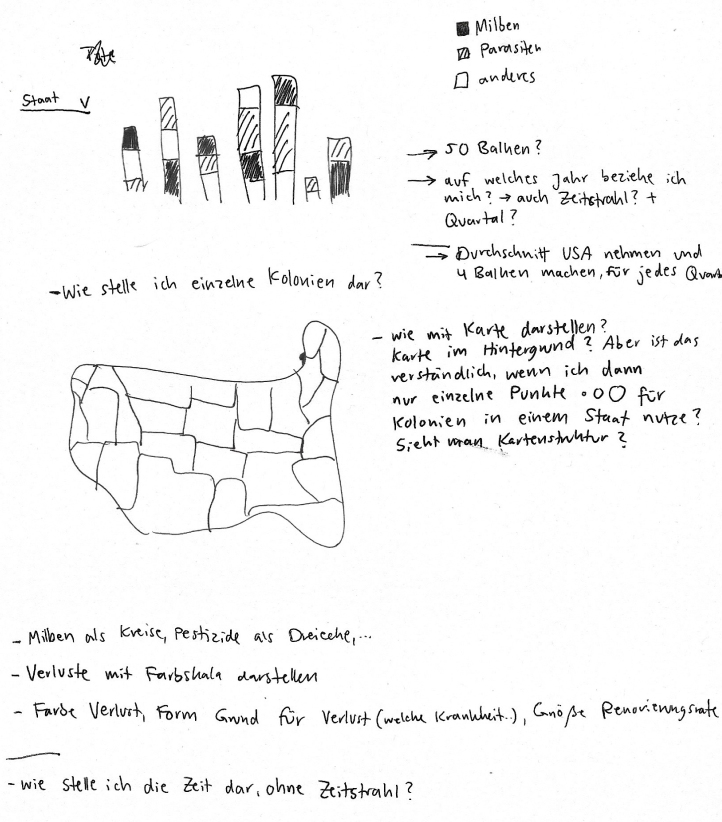 Milben
Parasiten
anderes
Staat V
→ 50 Balken?
→ auf welches Jahr beziehe ich
mich? → auch Zeitstrahl? +
Quartal?
→ Durchschnitt USA nehmen und
4 Balken machen, für jedes Quart
- Wie stelle ich einzelne Kolonien dar?
- wie mit Karte darstellen?
Karte im Hintergrund? Aber ist das
verständlich, wenn ich dann
nur einzelne Punkte für
Kolonien in einem Staat nutze?
Sieht man Kartenstruktur?
- Milben als Kreise, Pestizide als Dreiecke,...
- Verluste mit Farbskala darstellen
- Farbe Verlust, Form Grund für Verlust (welche Krankheit..), Größe Renovierungsrate
- wie stelle ich die Zeit dar, ohne Zeitstrahl?